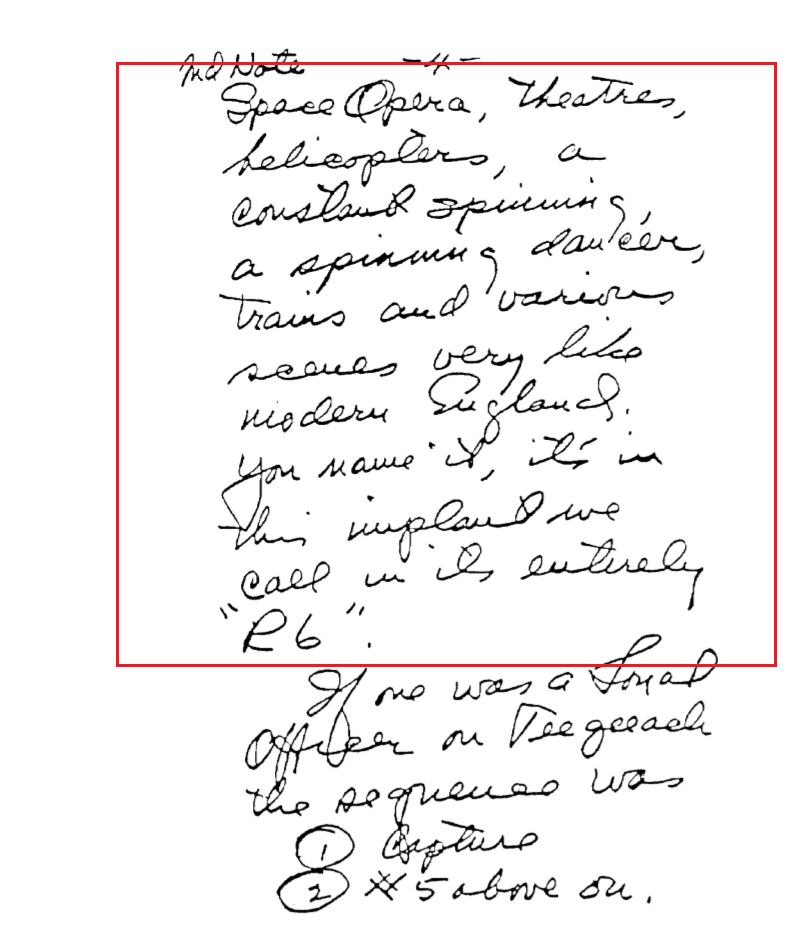 2nd Note -4-
Space Opera, theatres,
helicopters, a
constant spinning,
a spinning dancer,
trains and various
scenes very like
modern England.
You name it, it's in
this implant we
call in its entirely
"R6".
If one was a Loyal
Officer on Teegeeack
the sequence was
① Capture
② #5 above on.